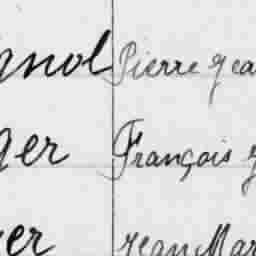 gnol Pierre Jea
ger François J
er Jean Mar